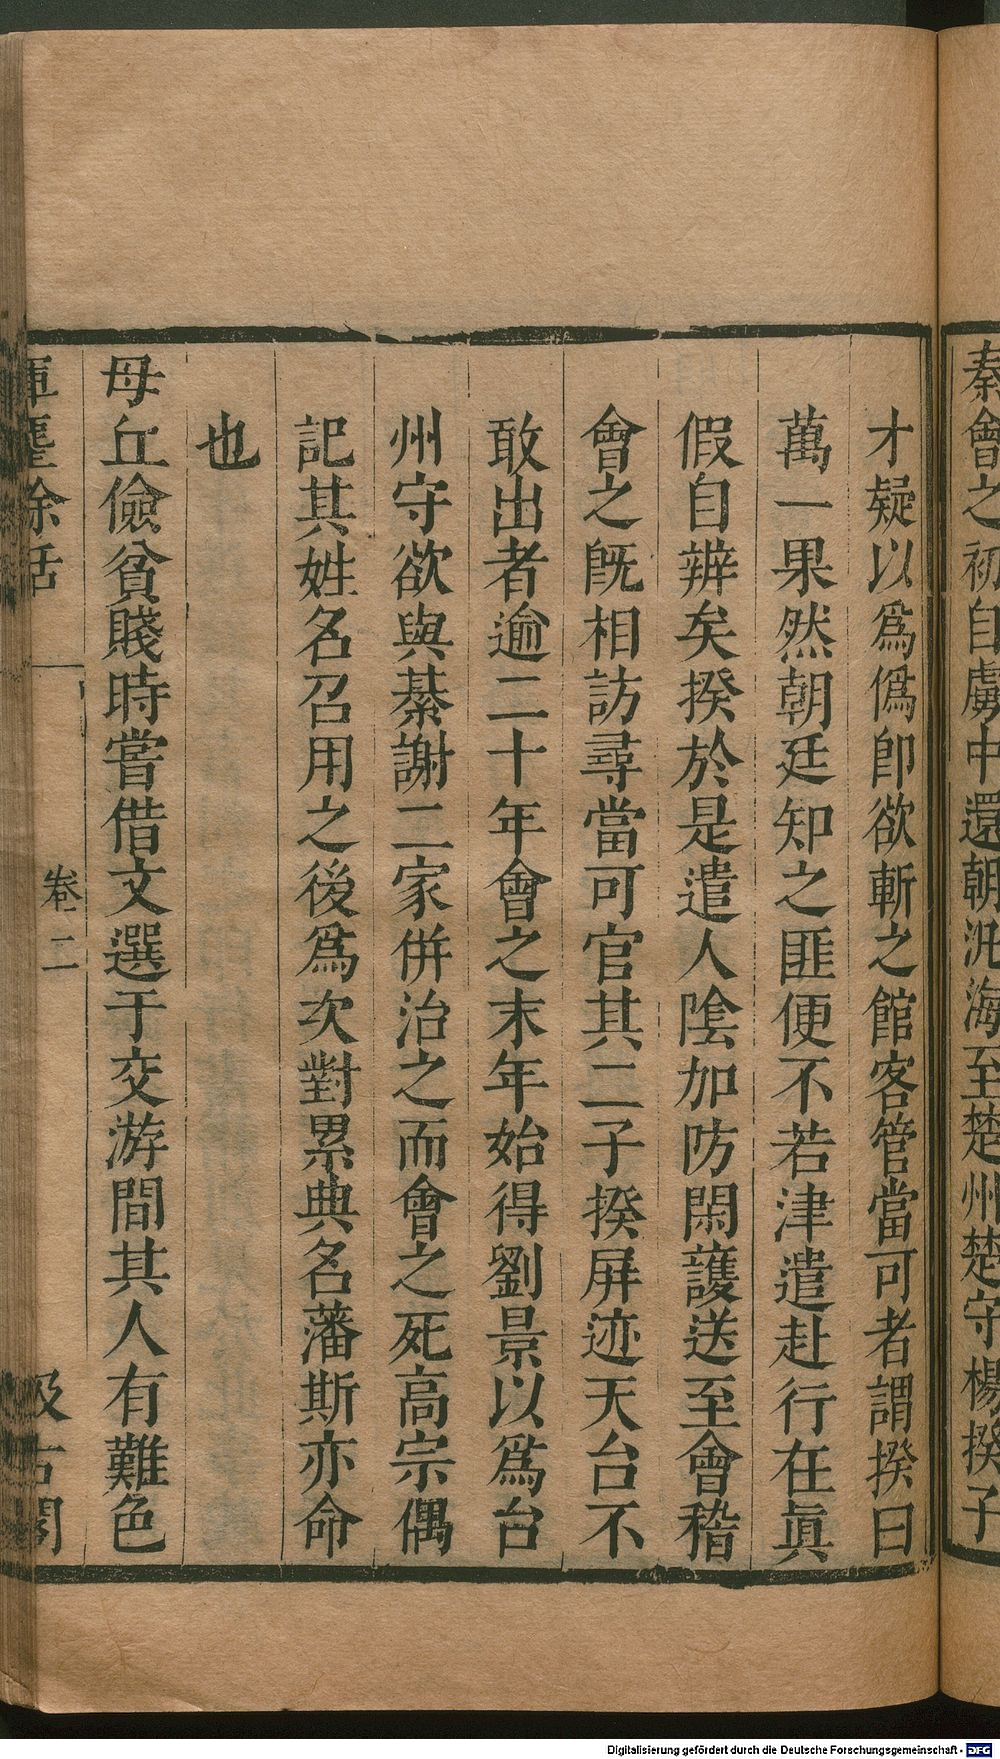 秦會之初自虜中還朝泛海至楚州楚守楊揆子
才疑以爲僞卽欲斬之館客管當可者謂揆曰
萬一果然朝廷知之匪便不若津遣赴行在眞
假自辨矣揆於是遣人陰加防閑護送至會稽
會之旣相訪尋當可官其二子揆屏迹天台不
敢出者逾二十年會之末年始得劉景以爲台
州守欲與綦謝二家併治之而會之死高宗偶
記其姓名召用之後爲次對累典名藩斯亦命
也
母丘儉貧賤時嘗借文選于交游間其人有難色
揮麈餘話
卷二
汲古閣
Digitalisierung gefördert durch die Deutsche Forschungsgemeinschaft - DFG